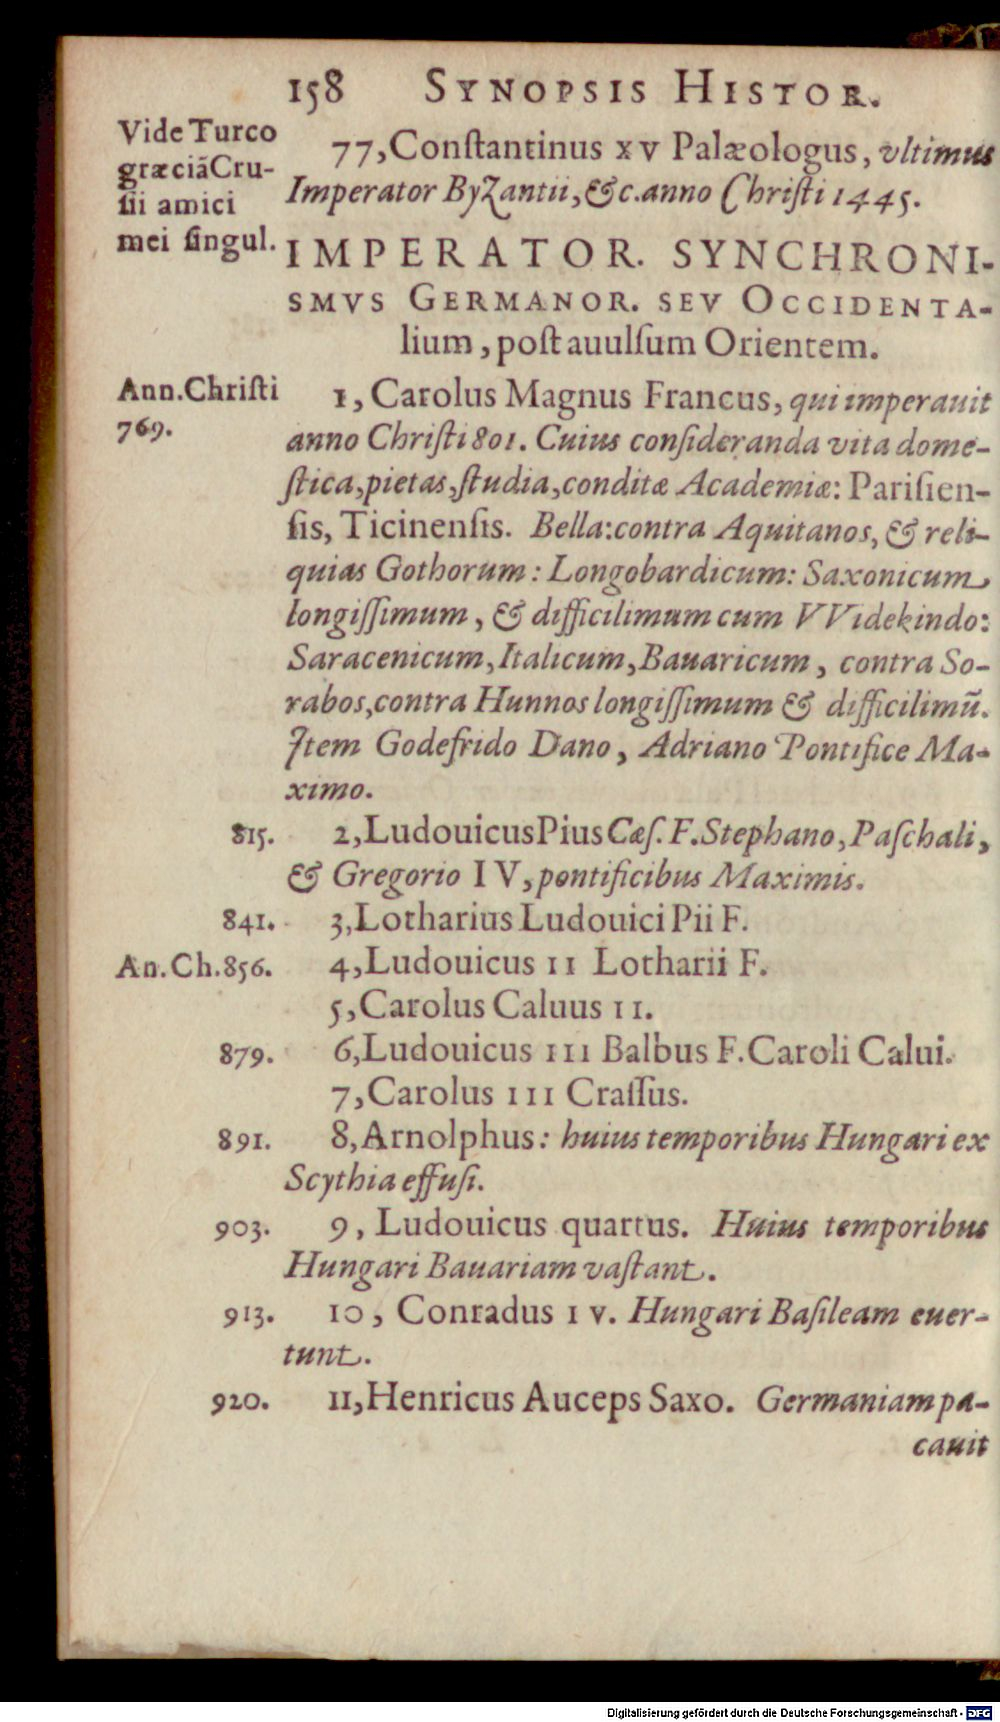 158 SYNOPSIS HISTOR.
Vide Turco
græciã Cru-
sii amici
mei singul.
77, Constantinus XV Palæologus, vltimus
Imperator Byzantii, &c. anno Christi 1445.
IMPERATOR. SYNCHRONI-
SMVS GERMANOR. SEV OCCIDENTA-
lium, post auulsum Orientem.
Ann. Christi
769.
1, Carolus Magnus Francus, qui imperauit
anno Christi 801. Cuius consideranda vita dome-
stica, pietas, studia, conditæ Academiæ: Parisien-
sis, Ticinensis. Bella: contra Aquitanos, & reli-
quias Gothorum: Longobardicum: Saxonicum
longissimum, & difficilimum cum VVidekindo:
Saracenicum, Italicum, Bauaricum, contra So-
rabos, contra Hunnos longissimum & difficilimũ.
Item Godefrido Dano, Adriano Pontifice Ma-
ximo.
815. 2, Ludouicus Pius Cæs. F. Stephano, Paschali,
& Gregorio IV, pontificibus Maximis.
841. 3, Lotharius Ludouici Pii F.
An. Ch. 856. 4, Ludouicus II Lotharii F.
5, Carolus Caluus II.
879. 6, Ludouicus III Balbus F. Caroli Calui.
7, Carolus III Crassus.
891. 8, Arnolphus: huius temporibus Hungari ex
Scythia effusi.
903. 9, Ludouicus quartus. Huius temporibus
Hungari Bauariam vastant.
913. 10, Conradus IV. Hungari Basileam euer-
tunt.
920. 11, Henricus Auceps Saxo. Germaniam pa-
cauit
Digitalisierung gefördert durch die Deutsche Forschungsgemeinschaft - DFG